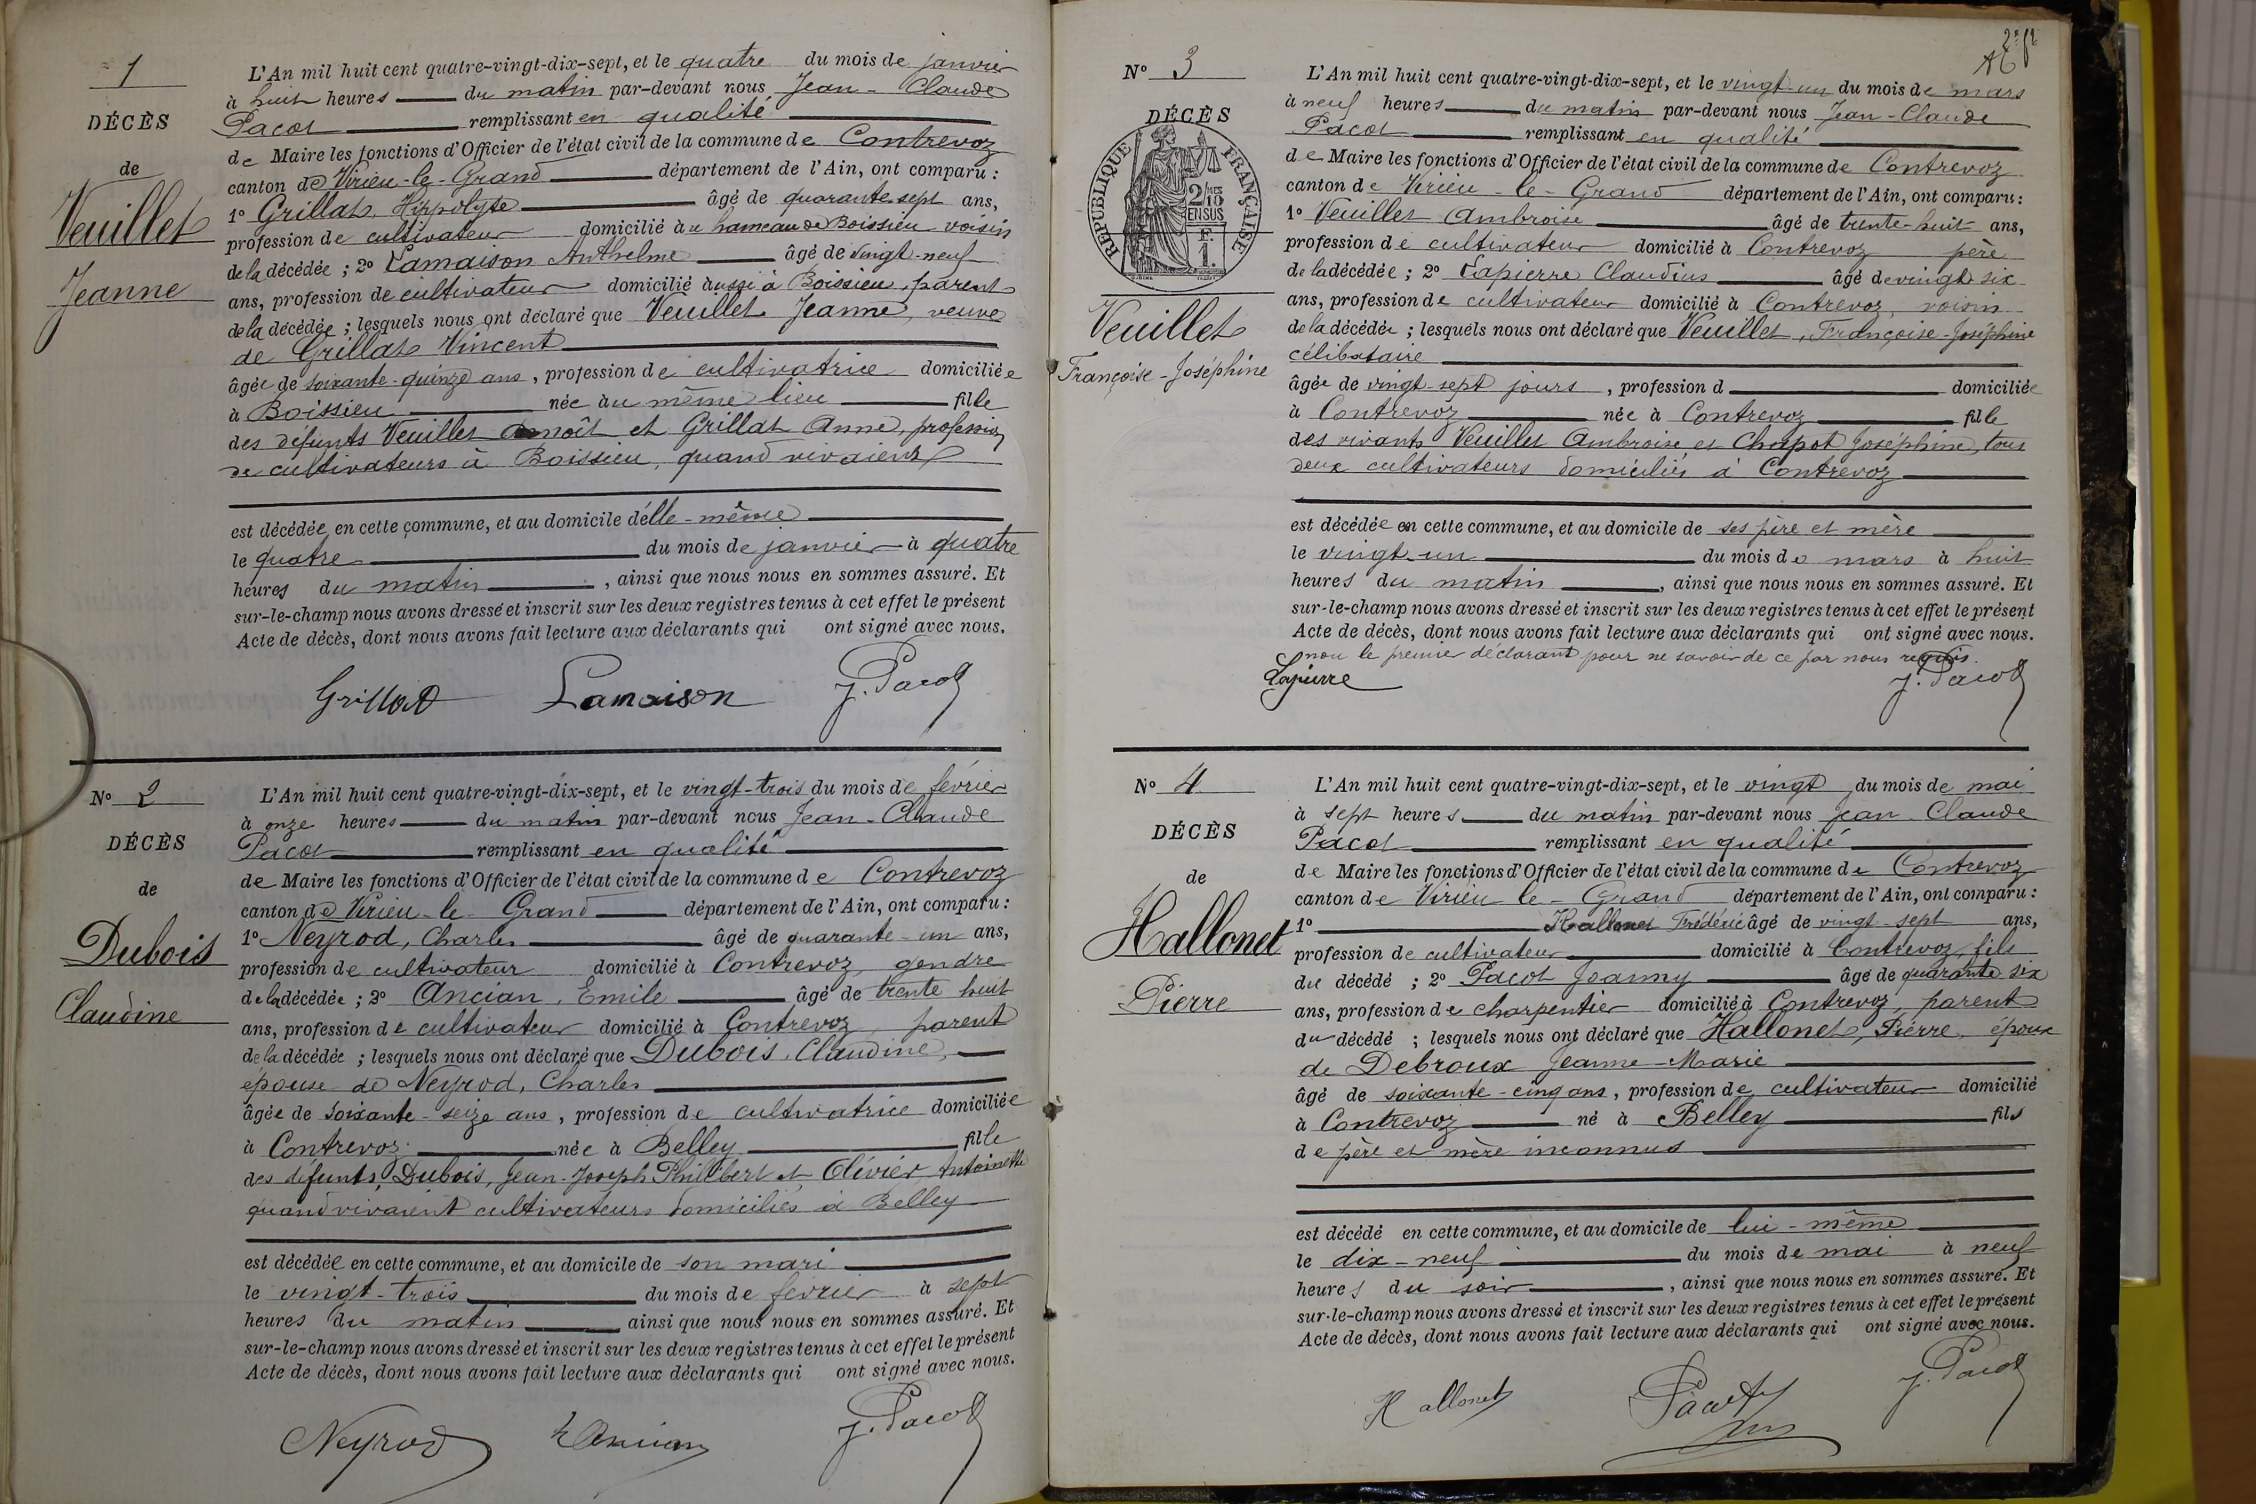 1
DÉCÈS
de
Veuillet
Jeanne
L'An mil huit cent quatre-vingt-dix-sept, et le quatre du mois de janvier
à huit heures du matin par-devant nous Jean-Claude
Pacot remplissant en qualité
de Maire les fonctions d'Officier de l'état civil de la commune de Contrevoz
canton de Virieu-le-Grand département de l'Ain, ont comparu :
1° Grillat, Hippolyte âgé de quarante-sept ans,
profession de cultivateur domicilié au hameau de Boissieu voisin
de la décédée ; 2° Lamaison Anthelme âgé de vingt-neuf
ans, profession de cultivateur domicilié aussi à Boissieu, parent
de la décédée ; lesquels nous ont déclaré que Veuillet Jeanne, veuve
de Grillat Vincent
âgée de soixante-quinze ans, profession de cultivatrice domiciliée
à Boissieu née au même lieu fille
des défunts Veuillet et Grillat Anne, profession
de cultivateurs à Boissieu, quand vivaient
est décédée en cette commune, et au domicile d'elle-même
le quatre du mois de janvier à quatre
heures du matin, ainsi que nous nous en sommes assuré. Et
sur-le-champ nous avons dressé et inscrit sur les deux registres tenus à cet effet le présent
Acte de décès, dont nous avons fait lecture aux déclarants qui ont signé avec nous.
Grillat Lamaison J. Pacot
N° 2
DÉCÈS
de
Dubois
Claudine
L'An mil huit cent quatre-vingt-dix-sept, et le vingt-trois du mois de février
à onze heures du matin par-devant nous Jean-Claude
Pacot remplissant en qualité
de Maire les fonctions d'Officier de l'état civil de la commune de Contrevoz
canton de Virieu-le-Grand département de l'Ain, ont comparu :
1° Neyrod, Charles âgé de quarante-un ans,
profession de cultivateur domicilié à Contrevoz, gendre
de la décédée ; 2° Ancian, Emile âgé de trente huit
ans, profession de cultivateur domicilié à Contrevoz, parent
de la décédée ; lesquels nous ont déclaré que Dubois, Claudine,
épouse de Neyrod, Charles
âgée de soixante-seize ans, profession de cultivatrice domiciliée
à Contrevoz née à Belley fille
des défunts, Dubois, Jean-Joseph Philibert et Olivier Antoinette
quand vivaient cultivateurs domiciliés à Belley
est décédée en cette commune, et au domicile de son mari
le vingt-trois du mois de février à sept
heures du matin ainsi que nous nous en sommes assuré. Et
sur-le-champ nous avons dressé et inscrit sur les deux registres tenus à cet effet le présent
Acte de décès, dont nous avons fait lecture aux déclarants qui ont signé avec nous.
Neyrod Ancian J. Pacot
N° 3
DÉCÈS
RÉPUBLIQUE FRANÇAISE
2/10 EN SUS
1 F.
Veuillet
Françoise-Joséphine
L'An mil huit cent quatre-vingt-dix-sept, et le vingt-un du mois de mars
à neuf heures du matin par-devant nous Jean-Claude
Pacot remplissant en qualité
de Maire les fonctions d'Officier de l'état civil de la commune de Contrevoz
canton de Virieu-le-Grand département de l'Ain, ont comparu :
1° Veuillet Ambroise âgé de trente-huit ans,
profession de cultivateur domicilié à Contrevoz père
de la décédée ; 2° Lapierre Claudius âgé de vingt six
ans, profession de cultivateur domicilié à Contrevoz, voisin
de la décédée ; lesquels nous ont déclaré que Veuillet, Françoise-Joséphine
célibataire
âgée de vingt-sept jours, profession d domiciliée
à Contrevoz née à Contrevoz fille
des vivants Veuillet Ambroise et Chapot Joséphine, tous
deux cultivateurs domiciliés à Contrevoz
est décédée en cette commune, et au domicile de ses père et mère
le vingt-un du mois de mars à huit
heures du matin, ainsi que nous nous en sommes assuré. Et
sur-le-champ nous avons dressé et inscrit sur les deux registres tenus à cet effet le présent
Acte de décès, dont nous avons fait lecture aux déclarants qui ont signé avec nous.
non le premier déclarant pour ne savoir de ce par nous requis.
Lapierre J. Pacot
N° 4
DÉCÈS
de
Hallonet
Pierre
L'An mil huit cent quatre-vingt-dix-sept, et le vingt du mois de mai
à sept heures du matin par-devant nous Jean Claude
Pacot remplissant en qualité
de Maire les fonctions d'Officier de l'état civil de la commune de Contrevoz
canton de Virieu-le-Grand département de l'Ain, ont comparu :
1° Hallonet Frédéric âgé de vingt-sept ans,
profession de cultivateur domicilié à Contrevoz, fils
du décédé ; 2° Pacot Joanny âgé de quarante six
ans, profession de charpentier domicilié à Contrevoz, parent
du décédé ; lesquels nous ont déclaré que Hallonet, Pierre, époux
de Debroux Jeanne-Marie
âgé de soixante-cinq ans, profession de cultivateur domicilié
à Contrevoz né à Belley fils
de père et mère inconnus
est décédé en cette commune, et au domicile de lui-même
le dix-neuf du mois de mai à neuf
heures du soir, ainsi que nous nous en sommes assuré. Et
sur-le-champ nous avons dressé et inscrit sur les deux registres tenus à cet effet le présent
Acte de décès, dont nous avons fait lecture aux déclarants qui ont signé avec nous.
Hallonet Pacot J. Pacot